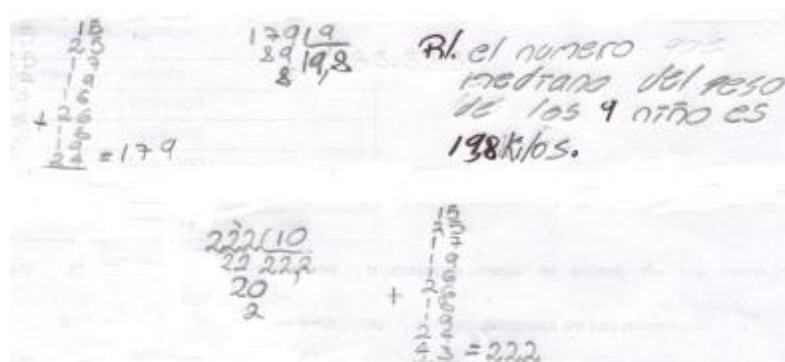 15
25
+
24 = 179
179 | 9
89 19,8
8
R/. el numero que
mediano del peso
de los 9 niño es
19,8 kilos.
222 | 10
22 22,2
20
2
15
25
17
19
16
26
18
19
24
43 = 222
+